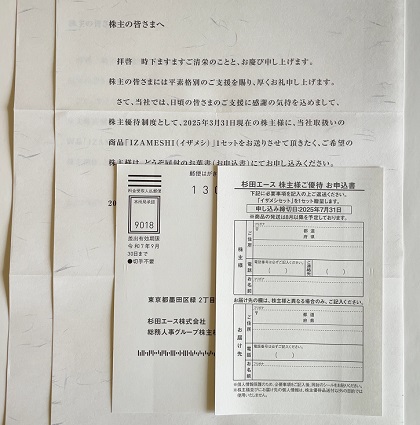 株主の皆さまへ
拝啓 時下ますますご清栄のことと、お慶び申し上げます。
株主の皆さまには平素格別のご支援を賜り、厚くお礼申し上げます。
さて、当社では、日頃の皆さまのご支援に感謝の気持を込めまして、
株主優待制度として、2025年3月31日現在の株主様に、当社取扱いの
商品「IZAMESHI(イザメシ)」1セットをお送りさせて頂きたく、ご希望の
株主様は、どうぞ同封のお葉書(お申込書)にてお申し込みください。
郵便はがき
料金受取人払郵便
本所局承認
9018
差出有効期限
令和7年9月
30日まで
●切手不要
130
東京都墨田区緑2丁目
杉田エース株式会社
総務人事グループ株主様
杉田エース 株主様ご優待 お申込書
下記に必要事項を記入の上ご返送ください。
「イザメシセット」を1セット贈呈します。
申し込み締切日2025年7月31日
※商品の発送は8月以降を予定しております。
株主様
ご住所
〒
都道府県
電話
電話番号は必ずご記入ください。
ご連絡先
お名前
お届け先の欄は、株主様と異なる場合のみ、ご記入ください。
お届け先
ご住所
〒
都道府県
電話
電話番号は必ずご記入ください。
お名前